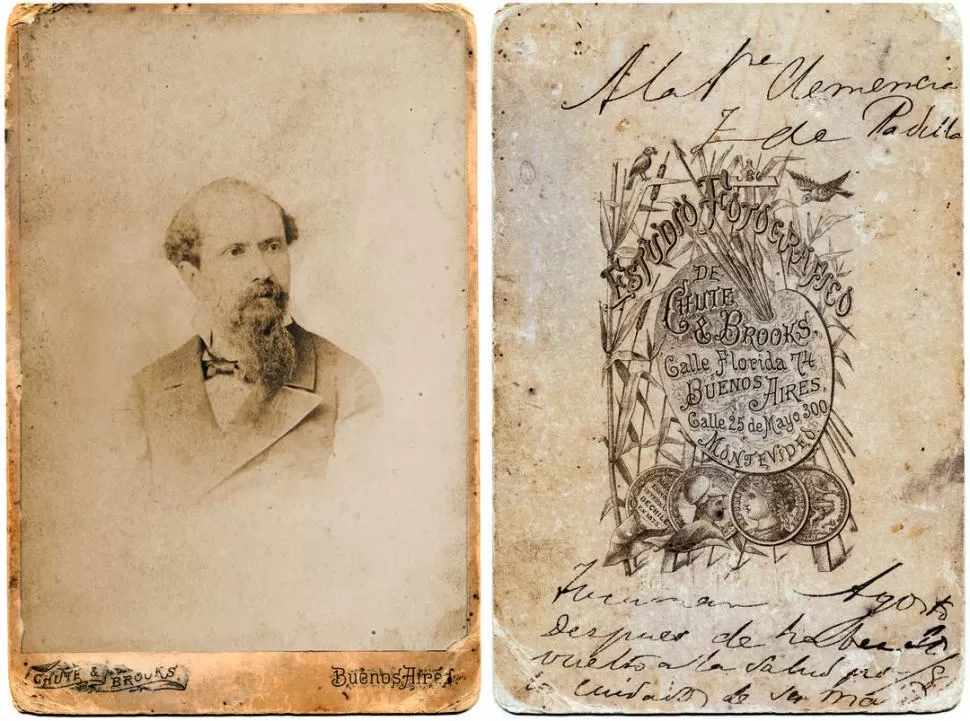 CHUTE & BROOKS
Buenos Aires
A la Sre Clemencia
Z de Padilla
ESTUDIO FOTOGRÁFICO
DE
CHUTE
& BROOKS.
Calle Florida 74
BUENOS AIRES.
Calle 25 de Mayo 300
MONTEVIDEO
DE CHILE
Tucuman Agosto
Despues de haber
vuelto a la salud por
cuidados de su